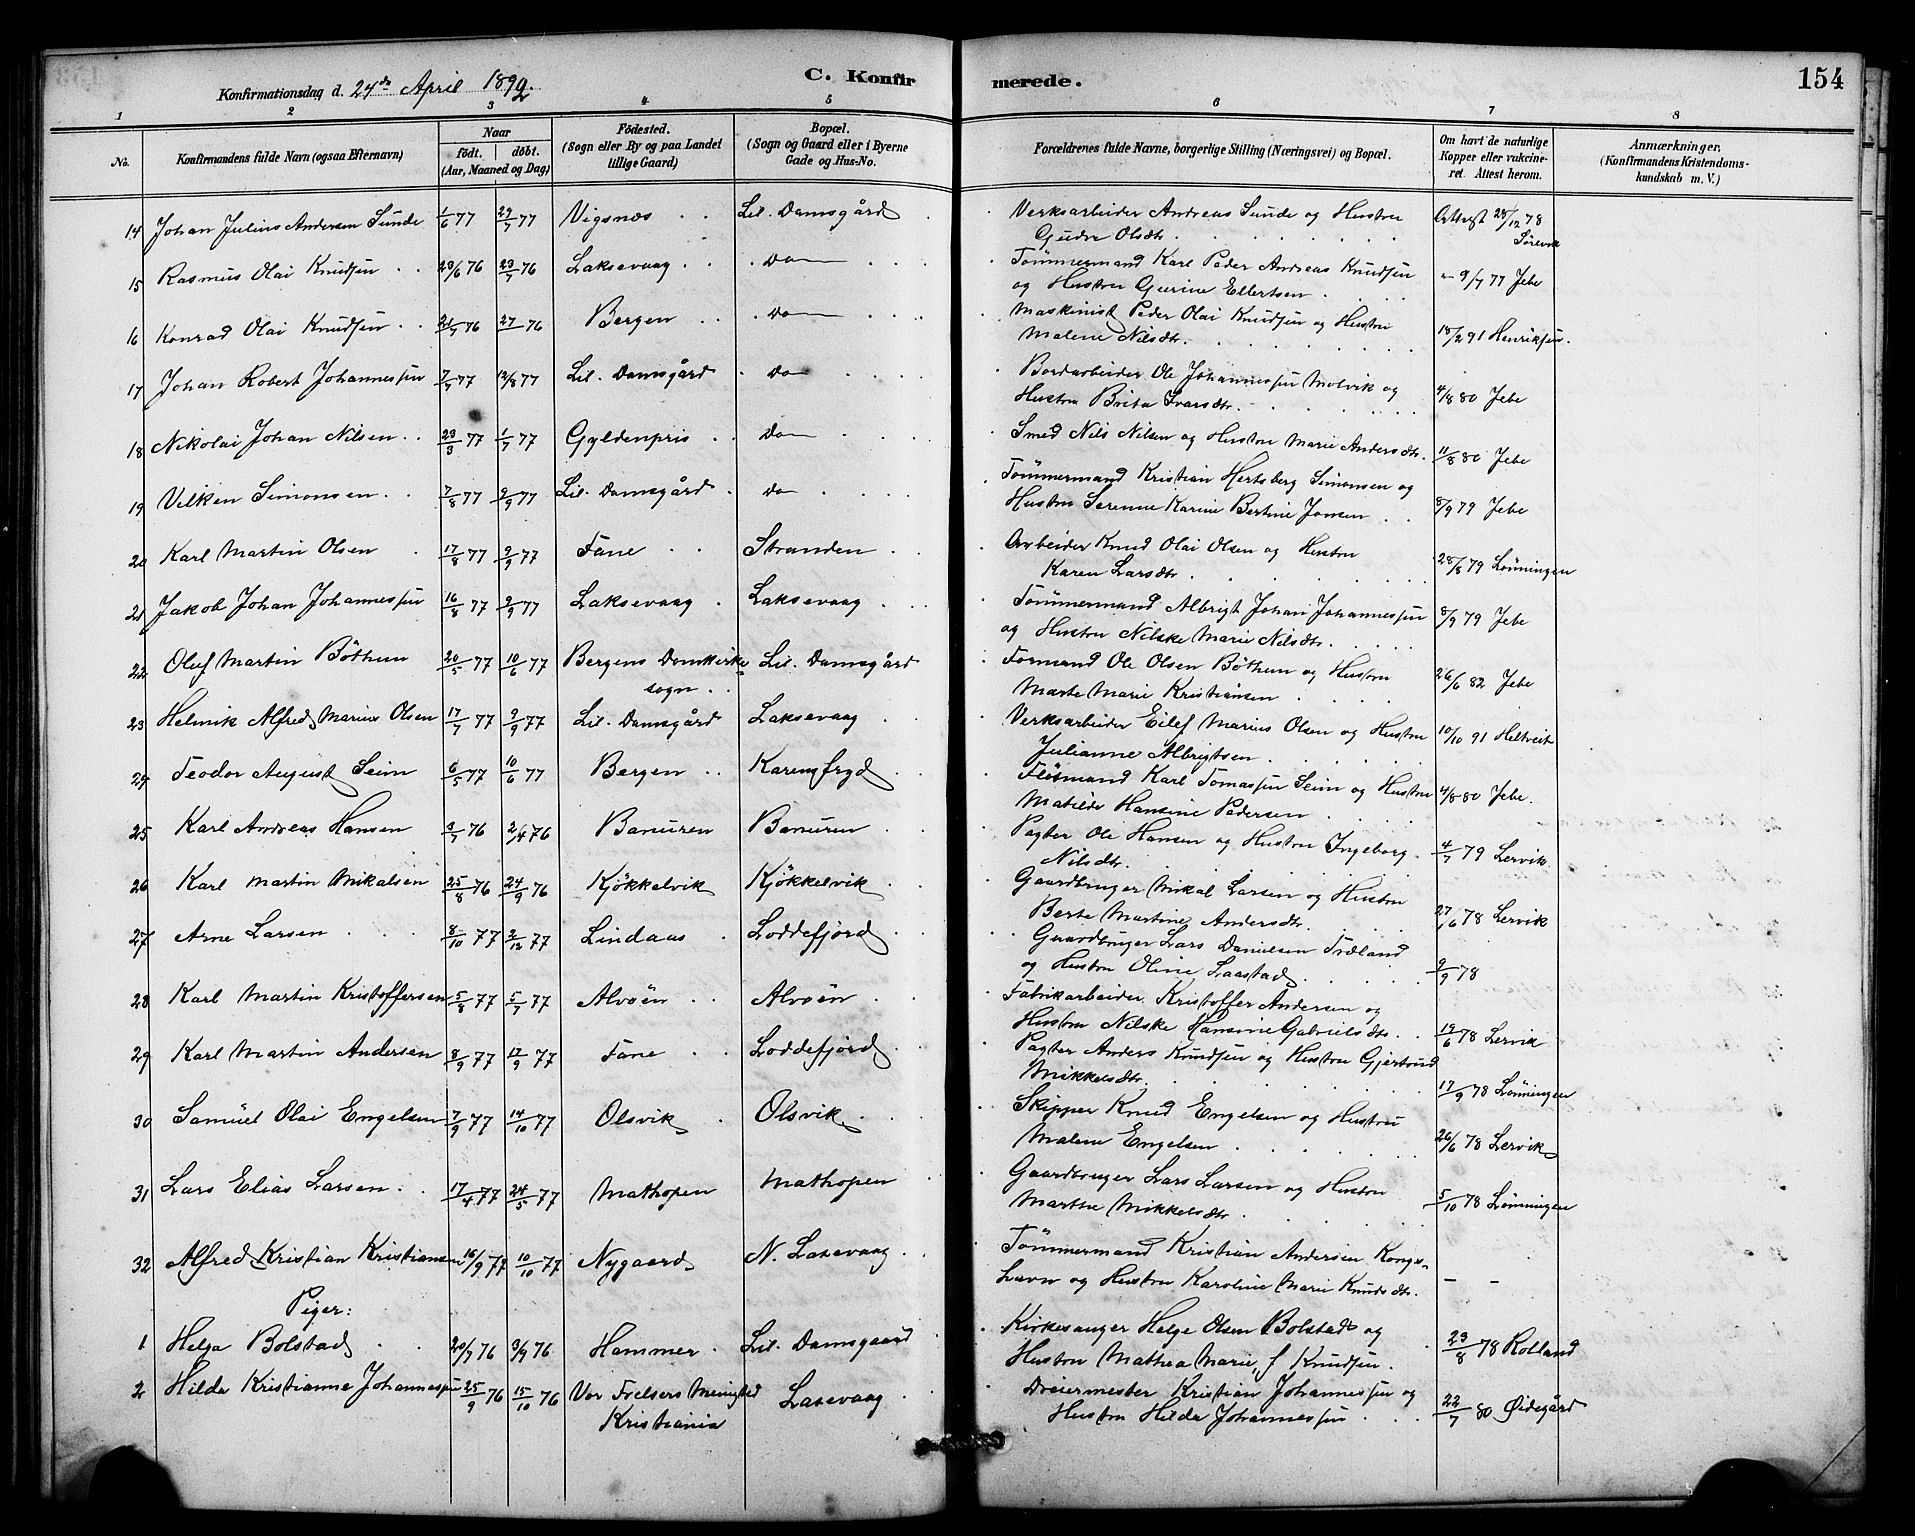 C. Konfirmerede. 154
Konfirmationsdag d. 24de April 1892.
1 2 3 4 5 6 7 8
No. Konfirmandens fulde Navn (ogsaa Efternavn) Naar födt. döbt. (Aar, Maaned og Dag) Födested. (Sogn eller By og paa Landet tillige Gaard) Bopæl. (Sogn og Gaard eller i Byerne Gade og Hus-No.) Forældrenes fulde Navne, borgerlige Stilling (Næringsvei) og Bopæl. Om havt de naturlige Kopper eller vakcineret. Attest herom. Anmærkninger. (Konfirmandens Kristendomskundskab m. V.)
14 Johan Julius Andersen Sunde 1/6 77 29/7 77 Vigsnæs Lil. Damsgård Verksarbeider Andreas Sunde og Hustru 28/12 78
Gudve Olsdtr. Sörevik
15 Rasmus Olai Knudsen 23/6 76 23/7 76 Laksevaag Do Tömmermand Karl Peder Andreas Knudsen
og Hustru Gurine Ellertsen 9/7 77 Jebe
16 Konrad Olai Knudsen 21/7 76 27/ 76 Bergen Do Maskinist Peder Olai Knudsen og Hustru
Malene Nilsdtr. 18/2 91 Henriksen.
17 Johan Robert Johannessen 7/7 77 12/8 77 Lil. Damsgård Do Bordarbeider Ole Johannessen Molvik og
Hustru Brita Ivarsdtr. 4/8 80 Jebe
18 Nikolai Johan Nilsen 23/3 77 1/7 77 Gyldenpris Do Smed Nils Nilsen og Hustru Marie Andersdtr. 11/8 80 Jebe
19 Vilken Simonsen 7/8 77 9/9 77 Lil. Damsgård Do Tömmermand Kristian Hertsberg Simonsen og
Hustru Serenne Karine Bertine Jonsen 8/9 79 Jebe
20 Karl Martin Olsen 17/8 77 9/9 77 Fane Stranden Arbeider Knud Olai Olsen og Hustru
Karen Larsdtr. 28/8 79 Lönningen
21 Jakob Johan Johannessen 16/8 77 9/9 77 Laksevaag Laksevaag Tömmermand Albrigt Johan Johannessen
og Hustru Nilske Marie Nilsdtr. 8/9 79 Jebe
22 Oluf Martin Böthun 20/5 77 10/6 77 Bergens Domkirkesogn Lil. Damsgård Formand Ole Olsen Böthun og Hustru
Marte Marie Kristiansen 26/6 82 Jebe
23 Helmik Alfred Marius Olsen 17/7 77 9/9 77 Lil. Damsgård Laksevaag Verksarbeider Eilef Marius Olsen og Hustru
Julianne Albrigtsen 10/10 91 Heltveit
24 Teodor August Seim 6/5 77 10/6 77 Bergen Karensfryd Flösmand Karl Tomassen Seim og Hustru
Matilde Hansine Pedersen 4/8 80 Jebe.
25 Karl Andreas Hansen 2/4 76 Banuren Banuren Pagter Ole Hansen og Hustru Ingeborg
Nilsdtr. 4/7 79 Lervik.
26 Karl Martin Mikalsen 25/8 76 24/9 76 Kjökkelvik Kjökkelvik Gaardbruger Mikal Larsen og Hustru
Berte Martine Andersdtr. 27/6 78 Lervik
27 Arne Larsen 8/10 77 2/12 77 Lindaas Loddefjord Gaardbruger Lars Danielsen Træland
og Hustru Oline Saastad 9/9 78
28 Karl Martin Kristoffersen 5/8 77 5/7 77 Alvöen Alvöen Fabrikarbeider Kristoffer Andersen og
Hustru Nilske Hansine Gabrielsdtr. 19/6 78 Lervik
29 Karl Martin Andersen 8/9 77 17/9 77 Fane Loddefjord Pagter Anders Knudsen og Hustru Gjertrud
Mikkelsdtr. 17/9 78 Lönningen
30 Samuel Olai Engelsen 7/9 77 14/10 77 Olsvik Olsvik Skipper Knud Engelsen og Hustru
Malene Engelsen 26/6 78 Lervik
31 Lars Elias Larsen 17/4 77 24/5 77 Mathopen Mathopen Gaardbruger Lars Larsen og Hustru
Marthe Mikkelsdtr. 5/10 78 Lönningen
32 Alfred Kristian Kristiansen 16/9 77 10/10 77 Nygaard N. Laxevaag Tömmermand Kristian Andersen Kongshavn
og Hustru Karoline Marie Knudsdtr. — —
Piger:
1 Helga Bolstad 20/7 76 3/9 76 Hammer Lil. Damsgaard Kirkesanger Helge Olsen Bolstad og
Hustru Mathea Marie f. Knudsen. 23/8 78 Rolland
2 Hilda Kristianne Johannessen 25/9 76 15/10 76 Vor Frelsers Menighed Laxevaag Dreiermester Kristian Johannessen og
Kristiania Hustru Hilda Johannessen 22/7 80 Ødegård